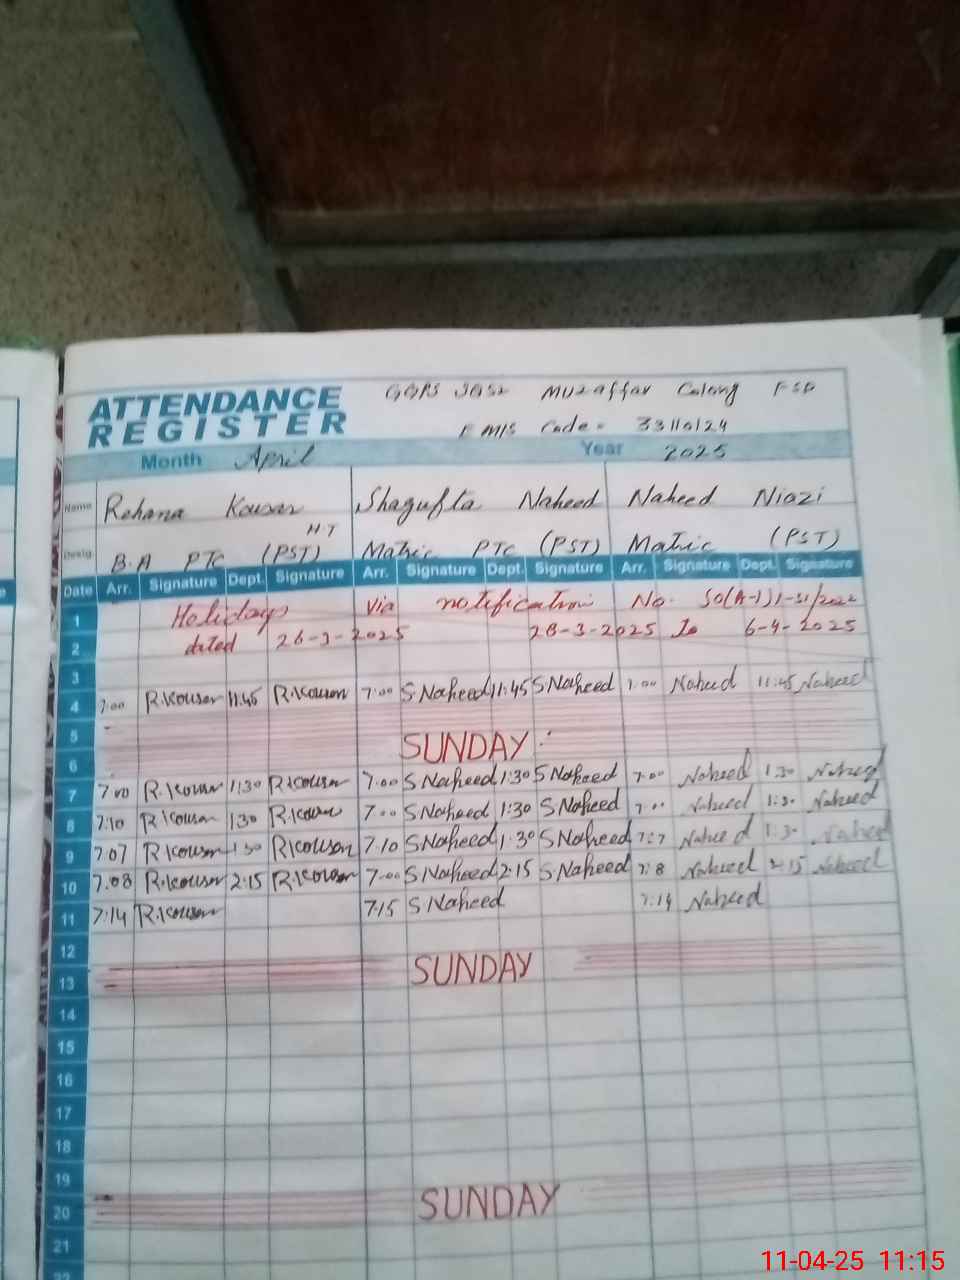 ATTENDANCE
REGISTER
Muzaffar Colony FSD
EMIS Code = 33110124
Month April Year 2025
Name Rehana Kousar Shagufta Naheed Naheed Niazi
H.T
Desig. B.A PTC (PST) Matric PTC (PST) Matric (PST)
Date Arr. Signature Dept. Signature Arr. Signature Dept. Signature Arr. Signature Dept. Signature
1 Holidays via notification No. SO(A-1)
2 dated 26-3-2025 28-3-2025 To 6-4-2025
3
4 7:00 R.Kousar 11:45 R.Kousar 7:00 S.Naheed 11:45 S.Naheed 7:00 Naheed 11:45 Naheed
5
6 SUNDAY
7 7:00 R.Kousar 1:30 R.Kousar 7:00 S.Naheed 1:30 S.Naheed 7:00 Naheed 1:30 Naheed
8 7:10 R.Kousar 1:30 R.Kousar 7:00 S.Naheed 1:30 S.Naheed 7:00 Naheed 1:30 Naheed
9 7.07 R.Kousar 1:30 R.Kousar 7:10 S.Naheed 1:30 S.Naheed 7:7 Naheed 1:30 Naheed
10 7.08 R.Kousar 2:15 R.Kousar 7:00 S.Naheed 2:15 S.Naheed 7:8 Naheed 2:15 Naheed
11 7:14 R.Kousar 7:15 S.Naheed 7:14 Naheed
12
13 SUNDAY
14
15
16
17
18
19
20 SUNDAY
21
22
11-04-25 11:15